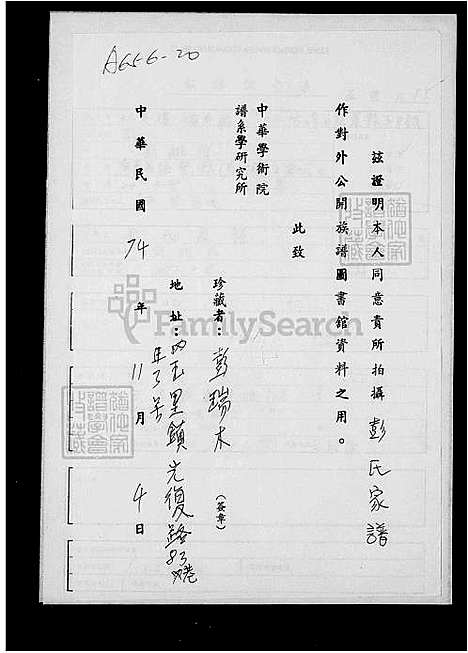 A656-20
茲證明本人同意貴所拍攝彭氏家譜
作對外公開族譜圖書館資料之用。
此致
中華學術院
譜系學研究所
珍藏者:彭瑞木(簽章)
地址:玉里鎮光復路83巷
中華民國74年11月4日
FamilySearch